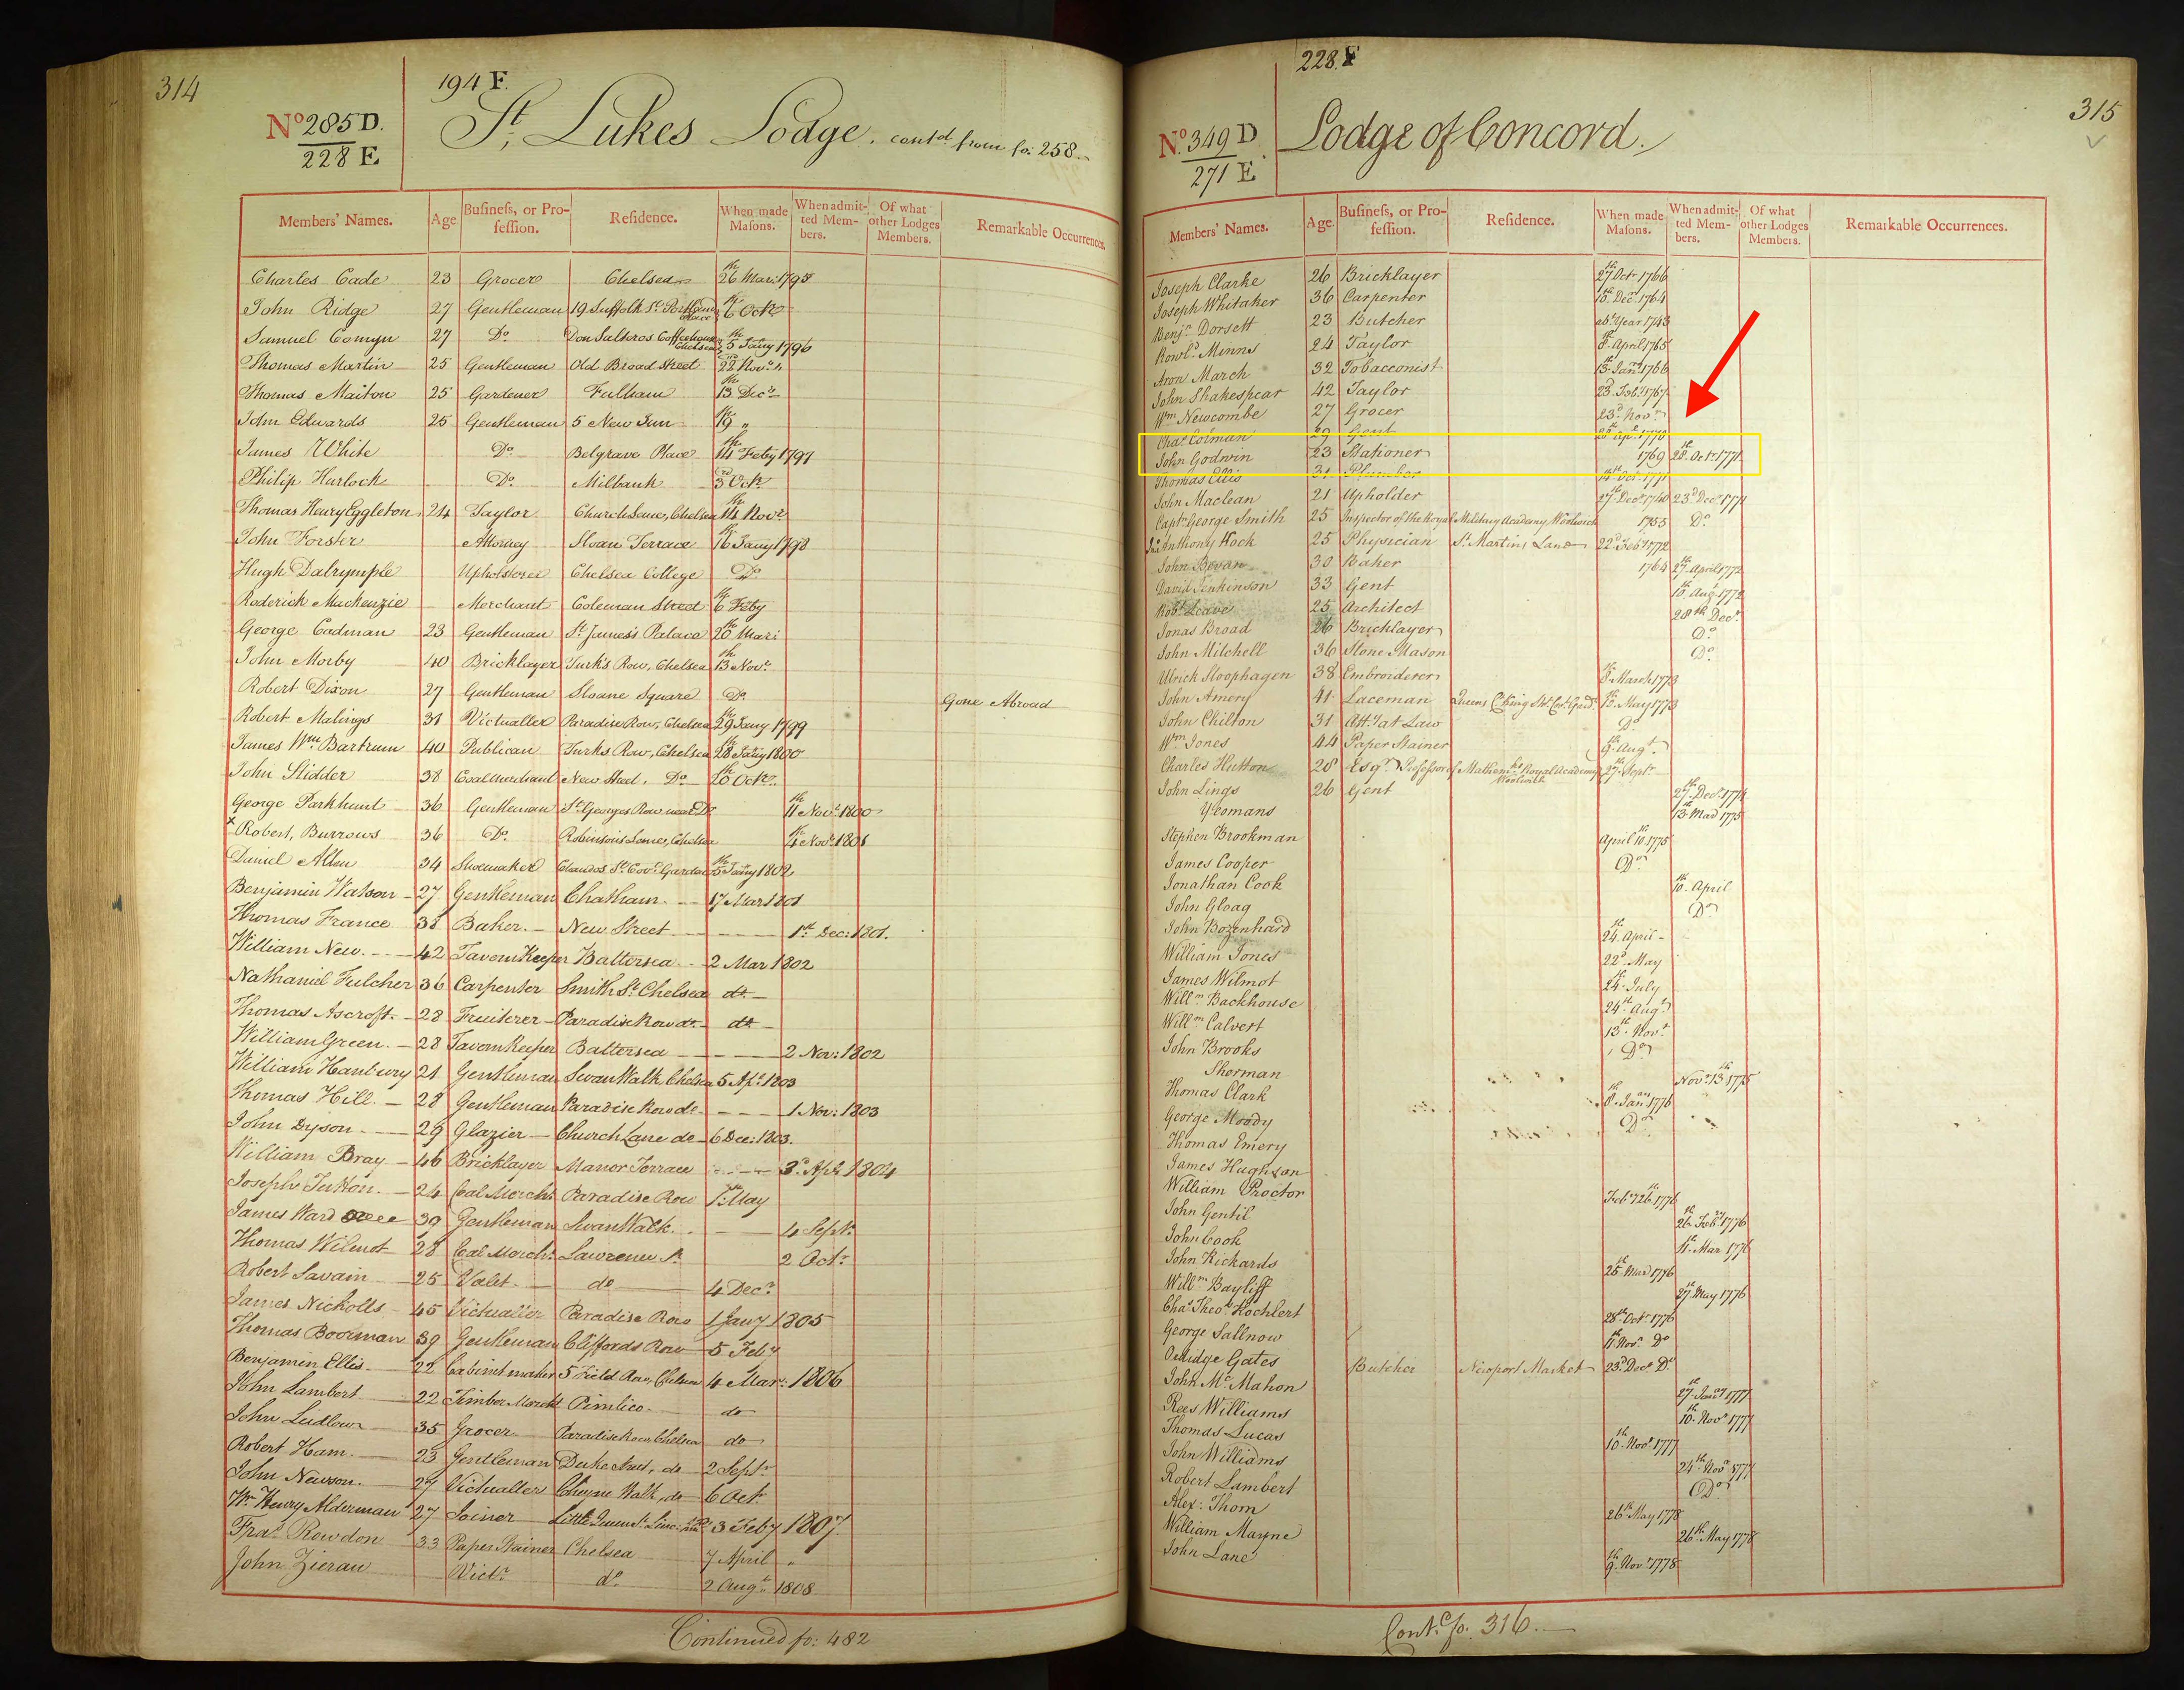 314
194 F.
No 285 D.
228 E
St Lukes Lodge. contd from fo: 258.
Members' Names. Age Buſineſs, or Pro-feſſion. Reſidence. When made Maſons. When admit-ted Mem-bers. Of what other Lodges Members. Remarkable Occurrences.
Charles Cade 23 Grocer Chelsea 26th Mar: 1795
John Ridge 27 Gentleman 19 Suffolk St. Portland Place 6th Octr
Samuel Comyn 27 Do Don Salteros Coffeehouse Chelsea 5th Jany 1796
Thomas Martin 25 Gentleman Old Broad Street 22d Novr "
Thomas Maiton 25 Gardener Fulham 13th Decr
John Edwards 25 Gentleman 5 New Inn 19th "
James White Do Belgrave Place 14th Feby 1797
Philip Harlock Do Milbank 3rd Octr
Thomas Henry Eggleton 24 Taylor Church Lane, Chelsea 14th Novr
John Forster Attorney Sloan Terrace 16th Jany 1798
Hugh Dalrymple Upholsterer Chelsea College Do
Roderick Mackenzie Merchant Coleman Street 6th Feby
George Cadman 23 Gentleman St James's Palace 20th Mar:
John Morby 40 Bricklayer Turk's Row, Chelsea 13th Novr
Robert Dixon 27 Gentleman Sloane Square Do Gone Abroad
Robert Malings 31 Victualler Paradise Row, Chelsea 29th Jany 1799
James Wm Bartrum 40 Publican Turks Row, Chelsea 28th Jany 1800
John Slidder 38 Coal Merchant New Street, Do 20th Octr
George Parkhunt 36 Gentleman St Georges Row near Do 11th Novr 1800
x Robert, Burrows 36 Do Robinsons Lane, Chelsea 4th Novr 1801
Daniel Allen 34 Shoemaker Chandos St Covt Garden 5th Jany 1802
Benjamin Watson 27 Gentleman Chatham 17 Mar 1801
Thomas France 38 Baker New Street 1st Dec: 1801.
William New 42 Tavern Keeper Battersea 2 Mar 1802
Nathaniel Fulcher 36 Carpenter Smith St Chelsea do
Thomas Ascroft 28 Fruiterer Paradise Row do do
William Green 28 Tavern Keeper Battersea 2 Nov: 1802
William Hanbury 21 Gentleman Swan Walk, Chelsea 5 Apl 1803
Thomas Hill 28 Gentleman Paradise Row do 1 Nov: 1803
John Dyson 29 Glazier Church Lane do 6 Dec: 1803.
William Bray 46 Bricklayer Manor Terrace 3d Apl 1804
Joseph Tutton 24 Coal Mercht Paradise Row 1st May
James Ward 39 Gentleman Swan Walk 4 Septr
Thomas Wilmot 28 Coal Mercht Lawrence St 2 Octr
Robert Savain 25 Valet do 4 Decr
James Nicholls 45 Victualler Paradise Row 1 Jany 1805
Thomas Boorman 39 Gentleman Cliffords Row 5 Feby
Benjamin Ellis 22 Cabinet maker 5 Field Row, Chelsea 4 Mar: 1806
John Lambert 22 Timber Mercht Pimlico do
John Ludlow 35 Grocer Paradise Row, Chelsea do
Robert Ham 23 Gentleman Duke Street, do 2 Septr
John Newson 27 Victualler Cheyne Walk, do 6 Octr
Wm Henry Alderman 27 Joiner 3 Feby 1807
Fras Rowdon 33 Paper Stainer Chelsea 7 April "
John Zierau Victr do 2 Augt 1808
Continued fo: 482
228. F
315
No. 349 D
271 E.
Lodge of Concord.
Members' Names. Age. Buſineſs, or Pro-feſſion. Reſidence. When made Maſons. When admit-ted Mem-bers. Of what other Lodges Members. Remarkable Occurrences.
Joseph Clarke 26 Bricklayer 27th Octr 1766
Joseph Whitaker 36 Carpenter 15th Decr 1764
Benjn Dorsett 23 Butcher abt Year 1743
Rowld Minns 24 Taylor 8th April 1765
Aron March 32 Tobacconist 13th Jany 1766
John Shakespear 42 Taylor 23d Feby 1767
Wm Newcombe 27 Grocer 23d Novr
Chas Colman 29 Gent 26th Apl 1770
John Godwin 23 Stationer 1769 28th Octr 1771
Thomas Ellis 31 Plumber 14th Octr 1771
John Maclean 21 Upholder 27th Decr 1740 23d Decr 1771
Captn George Smith 25 Inspector of the Royal Military Academy Woolwich 1755 Do
Jno Anthony Hock 25 Physician St Martins Lane 22d Feby 1772
John Bevan 30 Baker 1764 27th April 1772
David Jenkinson 33 Gent 10th Aug 1772
Robt Leave 25 Architect 28th Decr
Jonas Broad 26 Bricklayer Do
John Mitchell 36 Stone Mason Do
Ulrick Sloophagen 38 Embroiderer 8th March 1773
John Amery 41 Laceman Queens Ct King Str Cov. Gard. 10th May 1773
John Chilton 31 Atty at Law Do
Wm Jones 44 Paper Stainer 9th Augt
Charles Hutton 28 Esqr Professor of Mathem. Royal Academy Woolwich 27th Septr
John Lings 26 Gent 27th Decr 1774
Yeomans 13th Mar 1775
Stephen Brookman April 10th 1775
James Cooper Do
Jonathan Cook 10th April
John Gloag Do
John Bozenhard 24th April
William Jones 22d May
James Wilmot 24th July
Willm Backhouse 24th Augt
Willm Calvert 13th Novr
John Brooks Do
Sherman Novr 13th 1775
Thomas Clark 8th Jany 1776
George Moody Do
Thomas Emery
James Hughson
William Proctor Feby 26th 1776
John Gentil 26th Feby 1776
John Cook 11th Mar 1776
John Rickards 25th Mar 1776
Willm Bayliff 27th May 1776
Chas Theo. Kochlert 28th Octr 1776
George Sallnow 11th Novr Do
Oldidge Gates Butcher Newport Market 23d Decr Do
John Mc Mahon 27th Jany 1777
Rees Williams 10th Novr 1777
Thomas Lucas 10th Novr 1777
John Williams 24th Novr 1777
Robert Lambert Do
Alexr Thom 26th May 1778
William Mayne 26th May 1778
John Lane 9th Novr 1778
Contd fo. 316.